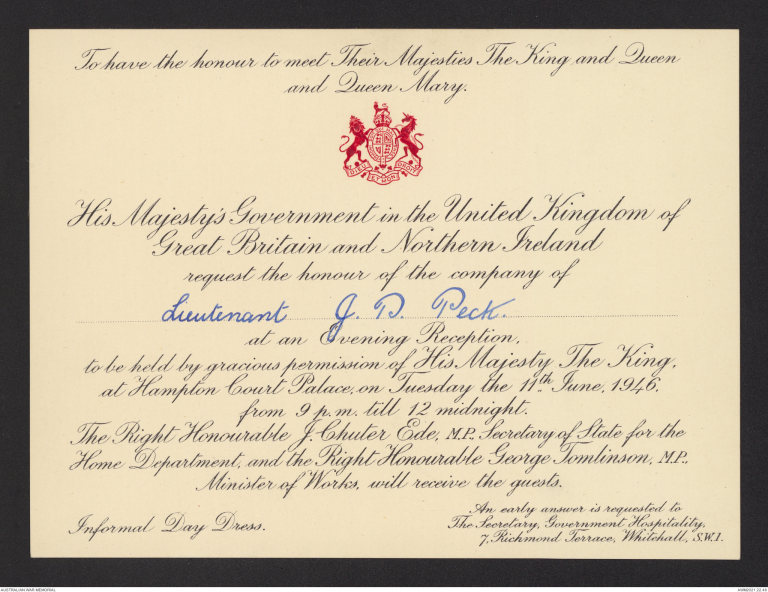 To have the honour to meet Their Majesties The King and Queen
and Queen Mary.
DIEU ET MON DROIT
His Majesty's Government in the United Kingdom of
Great Britain and Northern Ireland
request the honour of the company of
Lieutenant J. D. Peck.
at an Evening Reception,
to be held by gracious permission of His Majesty The King,
at Hampton Court Palace, on Tuesday the 11th June, 1946,
from 9 p.m. till 12 midnight.
The Right Honourable J. Chuter Ede, M.P., Secretary of State for the
Home Department, and the Right Honourable George Tomlinson, M.P.,
Minister of Works, will receive the guests.
Informal Day Dress.
An early answer is requested to
The Secretary, Government Hospitality,
7, Richmond Terrace, Whitehall, S.W.1.
AUSTRALIAN WAR MEMORIAL
AWM2021.22.46